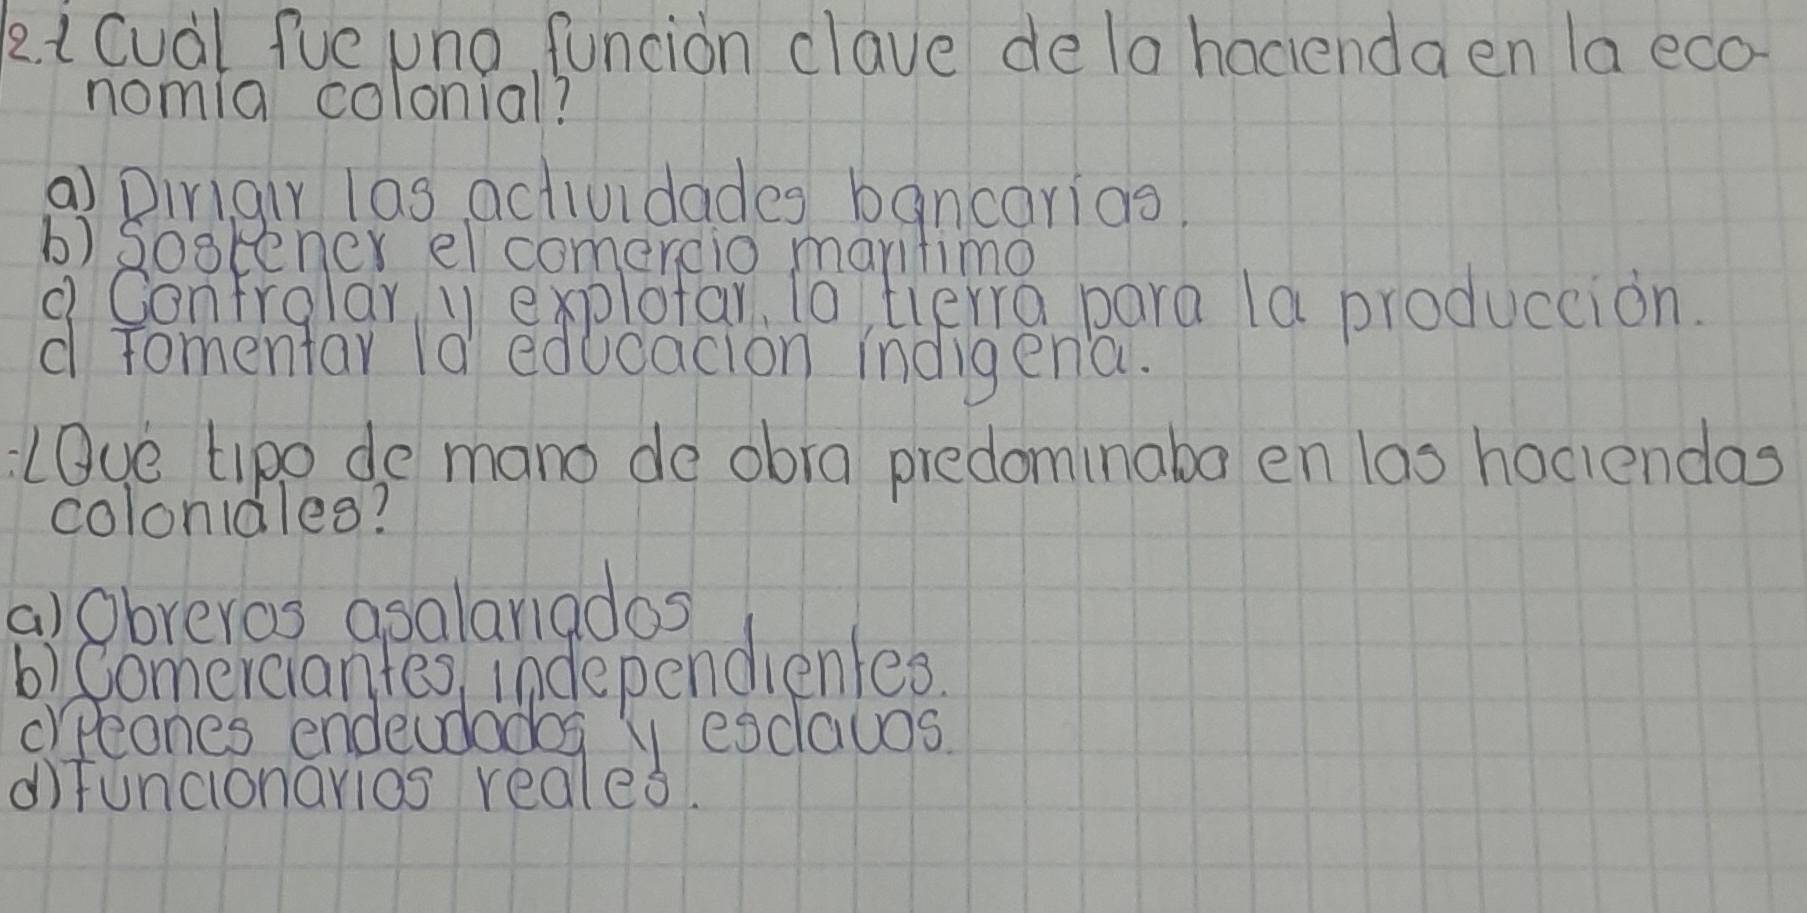 2.¿Cuál fue una función clave de la hacienda en la eco-
nomía colonial?
a) Dirigir las actividades bancarias.
b) Sostener el comercio maritimo
c) Controlar y explotar la tierra para la producción.
d Fomentar la educación indigena.
¿Qué tipo de mano de obra predominaba en las haciendas
coloniales?
a) Obreros asalariados
b) Comerciantes independientes.
c) Peones endeudados y esclavos.
d) Funcionarios reales.